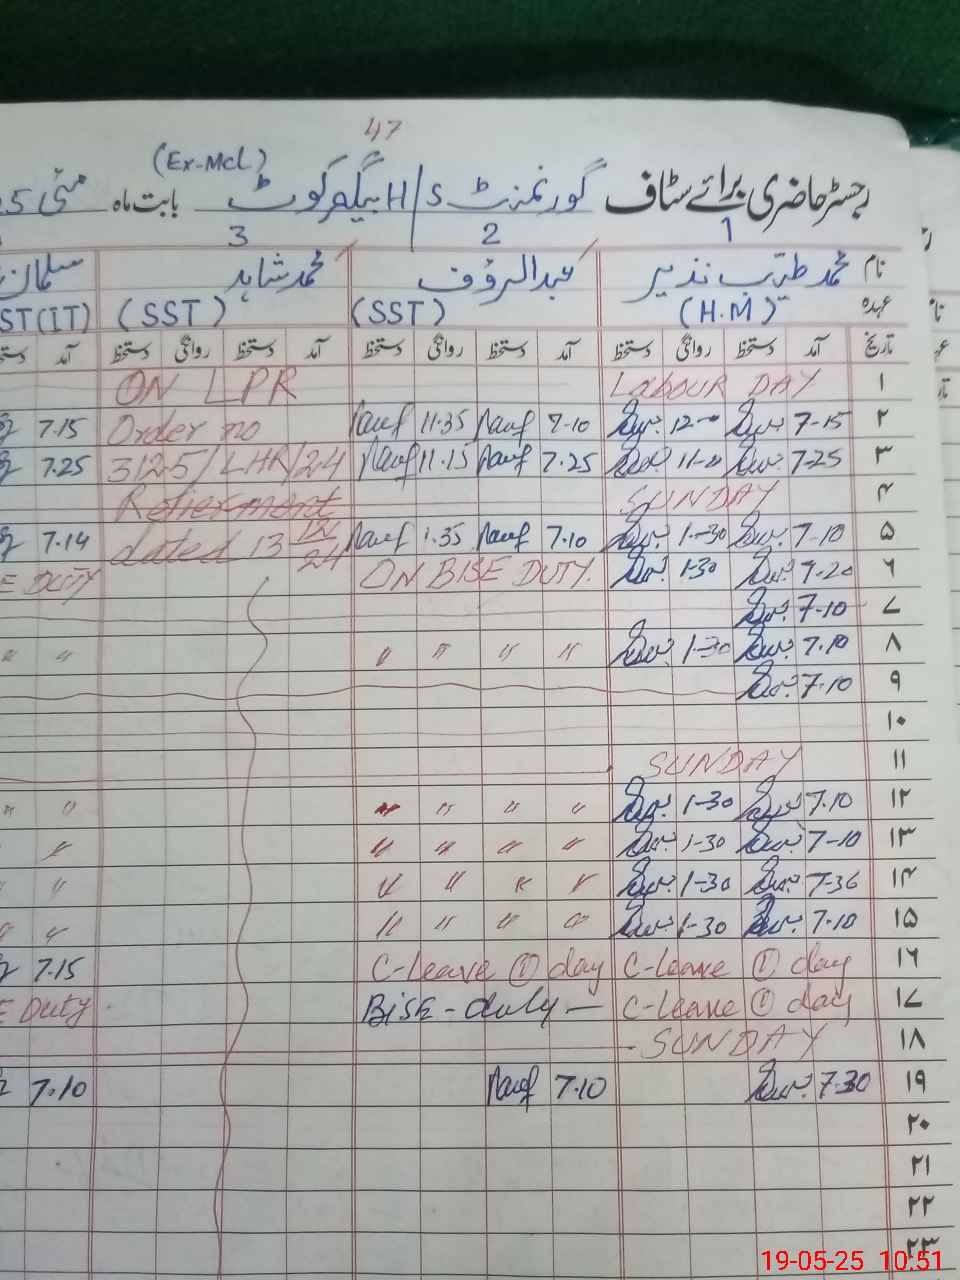 47
(Ex-Mcl)
رجسٹر حاضری برائے سٹاف گورنمنٹ H/S بیگم کوٹ بابت ماہ مئی
3 2 1
نام محمد طیب نذیر عبدالرؤف محمد شاہد سلمان
عہدہ (H.M) (SST) (SST) ST(IT)
تاریخ آمد دستخط روانگی دستخط آمد دستخط روانگی دستخط آمد دستخط روانگی دستخط آمد
۱ LABOUR DAY ON LPR
۲ 7-15 12-0 7-10 Rauf 11.35 Rauf Order no 7.15
۳ 7.25 11-0 7.25 Rauf 11.15 Rauf 3125/LHR/24 7.25
۴ SUNDAY Retierment
۵ 7-10 1-30 7.10 Rauf 1.35 Rauf dated 13 12/24 7.14
۶ 7-20 1-30 ON BISE DUTY. E DUTY
۷ 7-10
۸ 7.10 1-30 " " " " " "
۹ 7-10
۱۰
۱۱ SUNDAY
۱۲ 7.10 1-30 " " " " " "
۱۳ 7-10 1-30 " " " " "
۱۴ 7-36 1-30 " " " " " "
۱۵ 7.10 1-30 " " " " " "
۱۶ C-leave ① day C-leave ① day 7.15
۱۷ C-leave ① day Bise-duty — E Duty
۱۸ SUNDAY
۱۹ 7-30 7.10 Rauf 7.10
۲۰
۲۱
۲۲
۲۳
19-05-25 10:51